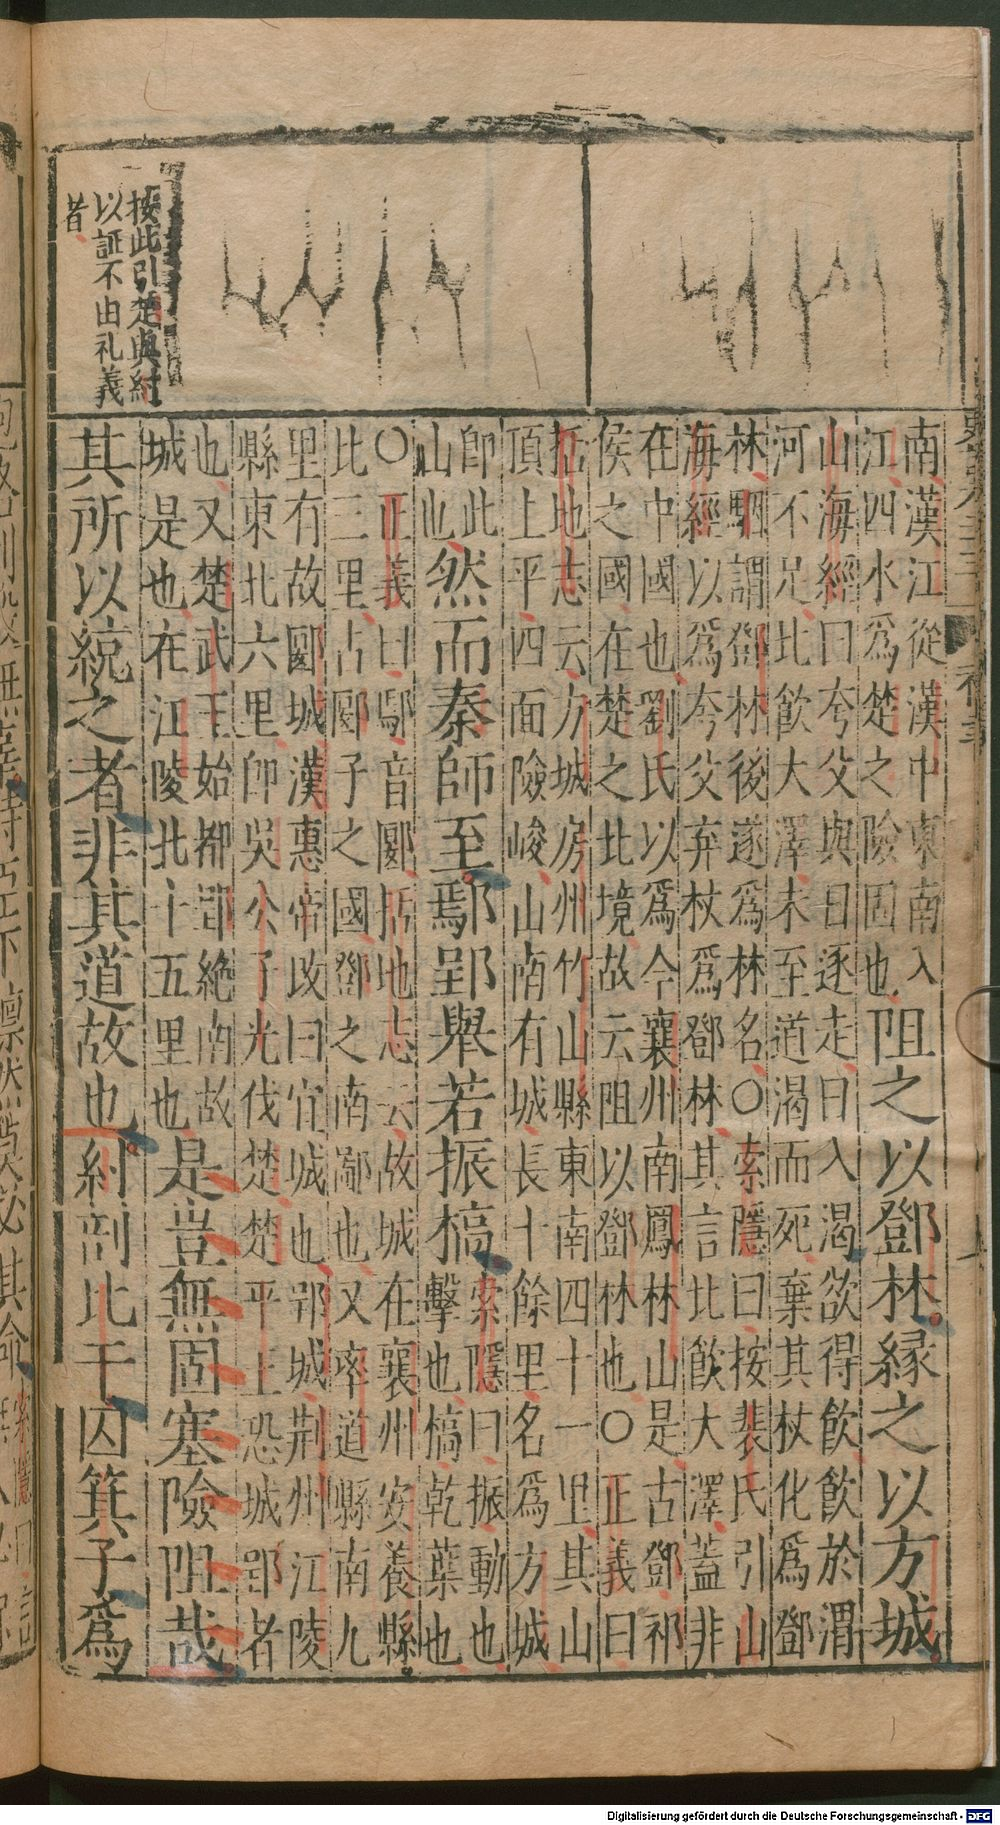 按此引楚與紂
以証不由礼義
者
南漢江從漢中東南入
江四水爲楚之險固也
阻之以鄧林緣之以方城
山海經曰夸父與日逐走日入渴欲得飲飲於渭
河不足北飲大澤未至道渴而死棄其杖化爲鄧
林駰謂鄧林後遂爲林名○索隱曰按裴氏引山
海經以爲夸父弃杖爲鄧林其言北飲大澤蓋非
在中國也劉氏以爲今襄州南鳳林山是古鄧祁
侯之國在楚之北境故云阻以鄧林也○正義曰
括地志云方城房州竹山縣東南四十一里其山
頂上平四面險峻山南有城長十餘里名爲方城
即此
山也
然而秦師至鄢郢舉若振槁
索隱曰振動也
擊也槁乾葉也
○正義曰鄢音郾括地志云故城在襄州安養縣
北三里古郾子之國鄧之南鄙也又率道縣南九
里有故郾城漢惠帝改曰宜城也郢城荆州江陵
縣東北六里即吳公子光伐楚楚平王恐城郢者
也又楚武王始都郢絶南故
城是也在江陵北十五里也
是豈無固塞險阻哉
其所以統之者非其道故也紂剖比干囚箕子爲
Digitalisierung gefördert durch die Deutsche Forschungsgemeinschaft - DFG